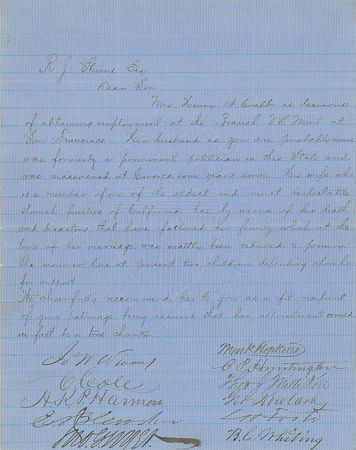 R J Stevens Esq
Dear Sir
Mrs Henry A Crabb is desirous
of obtaining employment at the Branch U.S. Mint at
San Francisco. Her husband as you are probably aware
was formerly a prominent politician in this State and
was massacred at Cavorca some years since. His wife who
is a member of one of the oldest and most respectable
Spanish families of California has by means of his death
and disasters that have followed her family which at the
time of her marriage was wealthy been reduced to penury.
She moreover has at present two children depending upon her
for support.
We cheerfully recommend her to you as a fit recipient
of your patronage being assured that her appointment would
in fact be a true charity
C Cole
A K P Harmon
Mark Hopkins
C P Huntington
Robt Rowland
L M Foote
B. C. Whiting